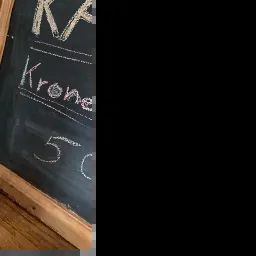 KA
Krone
5